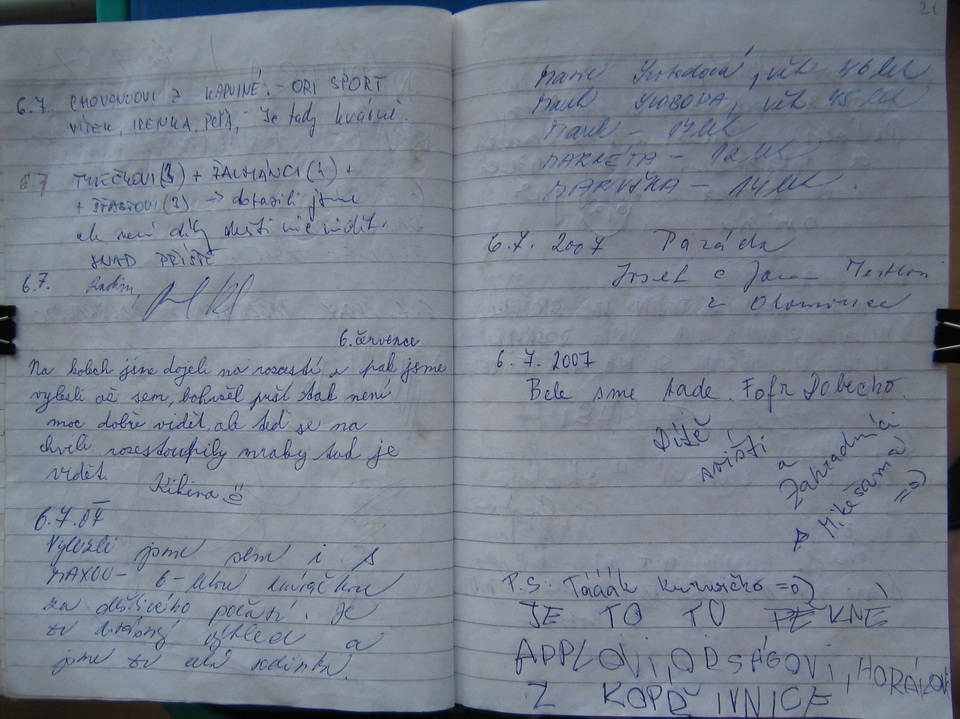 6.7. CHOVANCOVI Z KARVINÉ - ORI SPORT
VÍTEK, IRENKA, PÉŤA, - Je tady krásně.
6.7. + ŽALMÁNCI (4) +
+ ŠŤASTOVI (3) → dorazili jsme
ale není díky dešti nic vidět.
SNAD PŘÍŠTĚ
6.7. Radim,
6. července
Na kolech jsme dojeli na rozcestí a pak jsme
vylezli až sem, bohužel prší tak není
moc dobře vidět, ale teď se na
chvíli rozestoupily mraky tak je
vidět.
6.7.07
Vylezli jsme sem i s
MAXOU - 6-letou
za deštivého počasí. Je
tu výhled a
jsme tu celá rodinka.
21
Marie Svobodová, věk 46 let
Marek SVOBODA, věk 45 let
Marek - let
MARKÉTA - 12 let
- 14 let.
6.7. 2007 Paráda
Josef a Jana
z Olomouce
6. 7. 2007
Bele sme tade. Fofr Dobecko.
Dítě
sviští
a
Zahradníci
Mikešama
=)
P.S: Tááák =o)
JE TO TU PĚKNÉ
APPLOVI, ODSÁGOVI, HORÁKOVI
Z KOPŘIVNICE